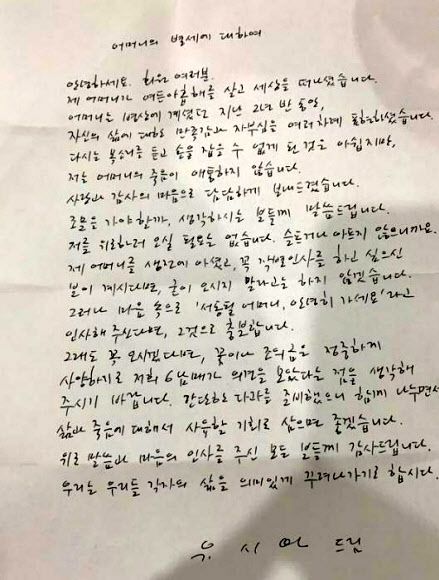 어머니의 별세에 대하여
안녕하세요. 회원 여러분.
제 어머니가 여든아홉해를 살고 세상을 떠나셨습니다.
어머니는 병상에 계셨던 지난 2년 반 동안,
자신의 삶에 대해 만족감과 자부심을 여러차례 표현하셨습니다.
다시는 목소리를 듣고 손을 잡을 수 없게 된 것은 아쉽지만,
저는 어머니의 죽음이 애통하지 않습니다.
사랑과 감사의 마음으로 담담하게 보내드렸습니다.
조문을 가야할까, 생각하시는 분들께 말씀드립니다.
저를 위로하러 오실 필요는 없습니다. 슬프거나 아프지 않으니까요.
제 어머니를 생전에 아셨고, 꼭 작별인사를 하고 싶으신
분이 계시다면, 굳이 오시지 말라고는 하지 않겠습니다.
그러나 마음 속으로 '서동필 어머니, 안녕히 가세요'라고
인사해 주신다면, 그것으로 충분합니다.
그래도 꼭 오시겠다면, 꽃이나 조의금을 정중하게
사양하기로 저희 6남매가 의견을 모았다는 점을 생각해
주시기 바랍니다. 간단한 다과를 준비했으니 함께 나누면서
삶과 죽음에 대해서 사유할 기회로 삼으면 좋겠습니다.
위로 말씀과 마음의 인사를 주신 모든 분들께 감사드립니다.
우리는 우리들 각자의 삶을 의미있게 꾸려나가기로 합시다.
유 시 민 드림